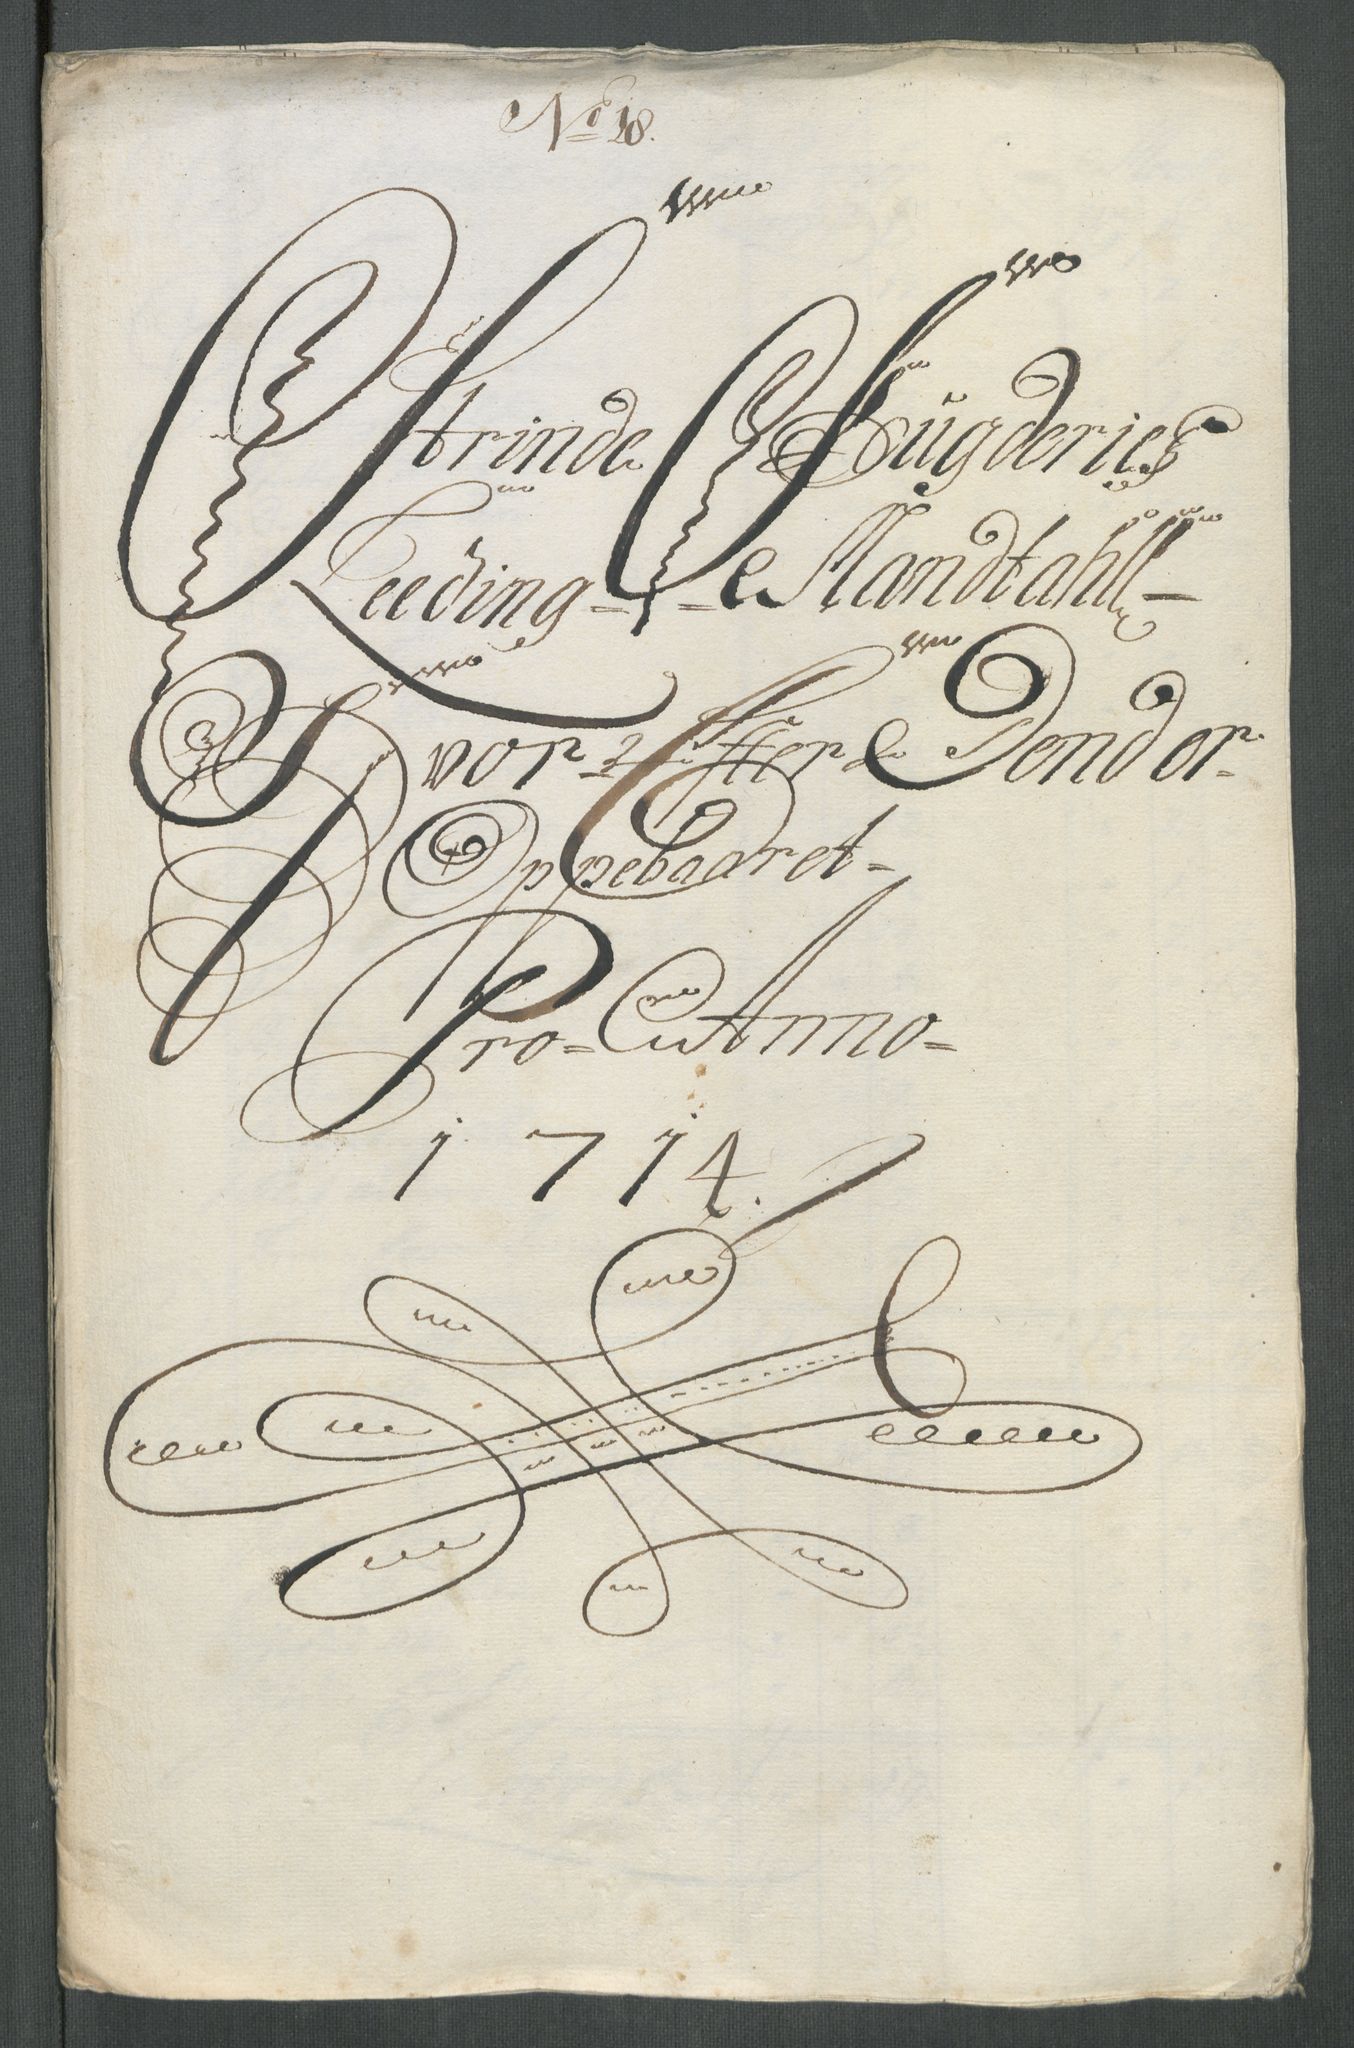 No 18.
Strinde Bÿgderies
Leeding-
Mandtahll-
Hvor Effter de Pender
Oppebaaret-
Pro- Anno-
1714.